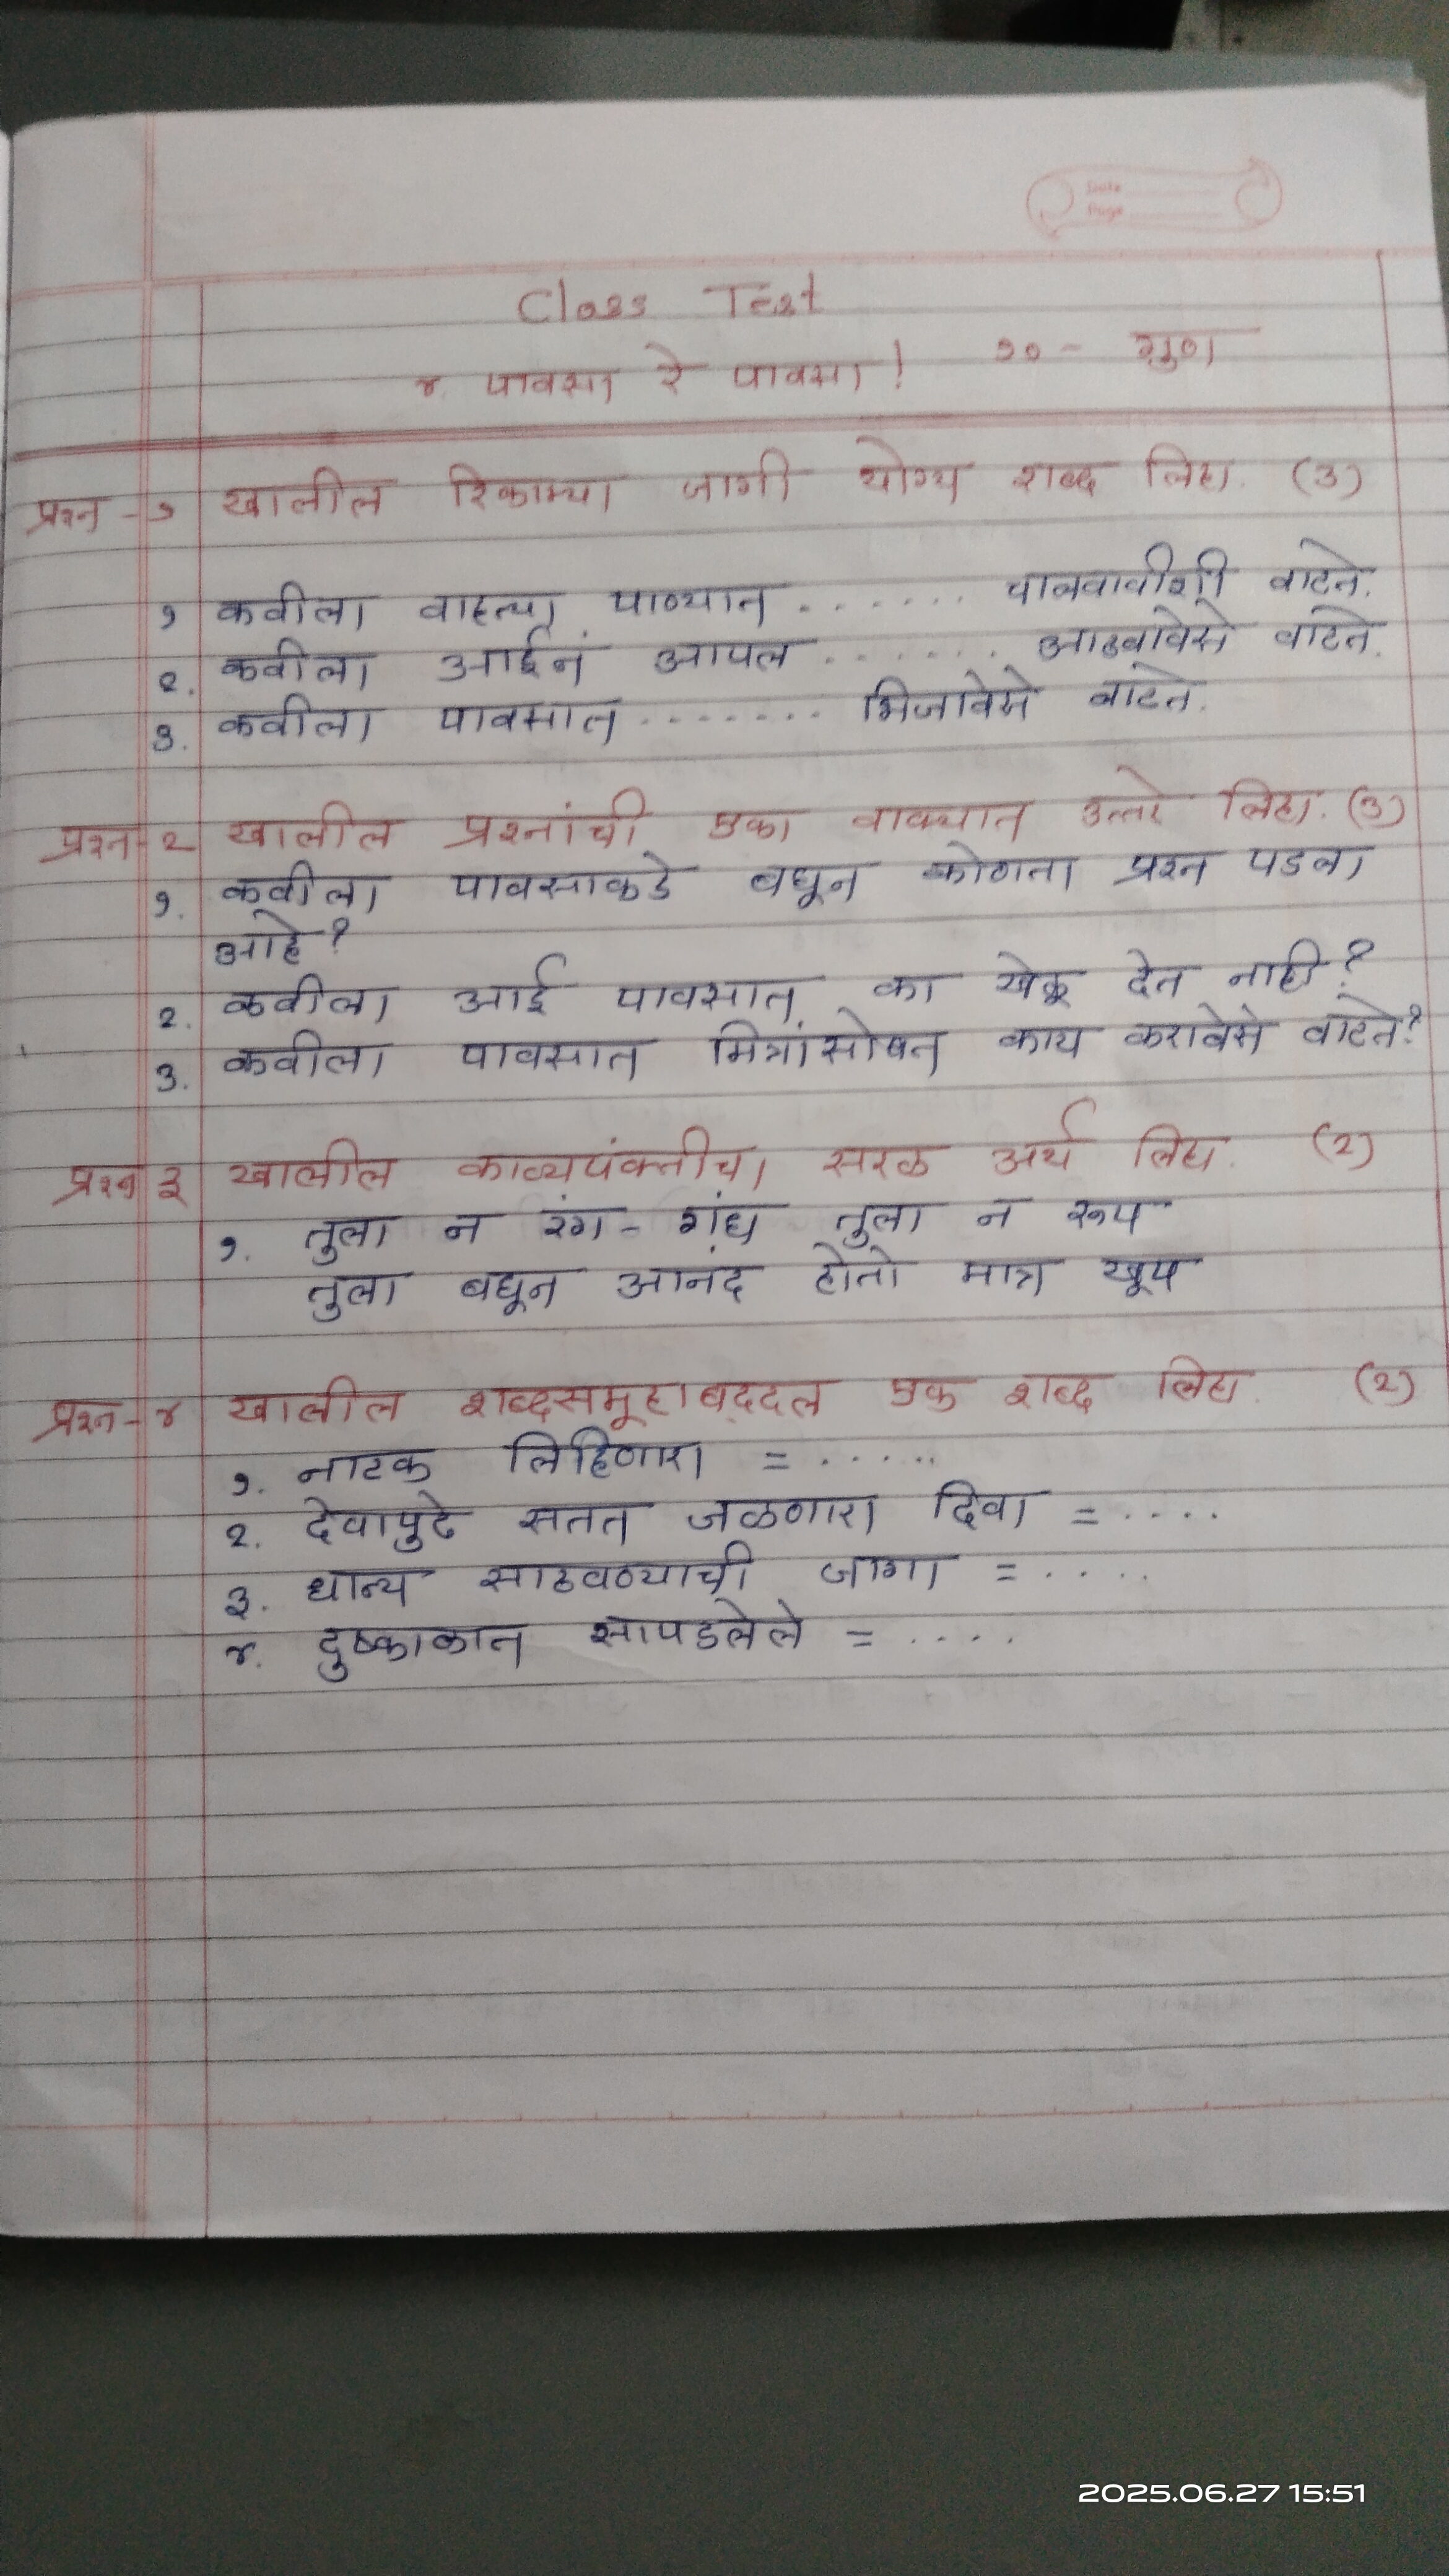 Date
Page
Class Test
४. पावसा रे पावसा! १० - गुण
प्रश्न - १ खालील रिकाम्या जागी योग्य शब्द लिहा. (३)
१ कवीला वाहत्या पाण्यात ....... चालवावीशी वाटते.
२. कवीला आईनं आपल ....... आठवावेसे वाटते.
३. कवीला पावसात ....... भिजावेसे वाटते.
प्रश्न - २ खालील प्रश्नांची एका वाक्यात उत्तरे लिहा. (३)
१. कवीला पावसाकडे बघून कोणता प्रश्न पडला
आहे?
२. कवीला आई पावसात का खेळू देत नाही?
३. कवीला पावसात मित्रांसोबत काय करावेसे वाटते?
प्रश्न ३ खालील काव्यपंक्तीचा सरळ अर्थ लिहा. (२)
१. तुला न रंग - गंध तुला न रूप
तुला बघून आनंद होतो मात्र खूप
प्रश्न - ४ खालील शब्दसमूहाबद्दल एक शब्द लिहा. (२)
१. नाटक लिहिणारा = ......
२. देवापुढे सतत जळणारा दिवा = .....
३. धान्य साठवण्याची जागा = .....
४. दुष्काळात सापडलेले = .....
2025.06.27 15:51